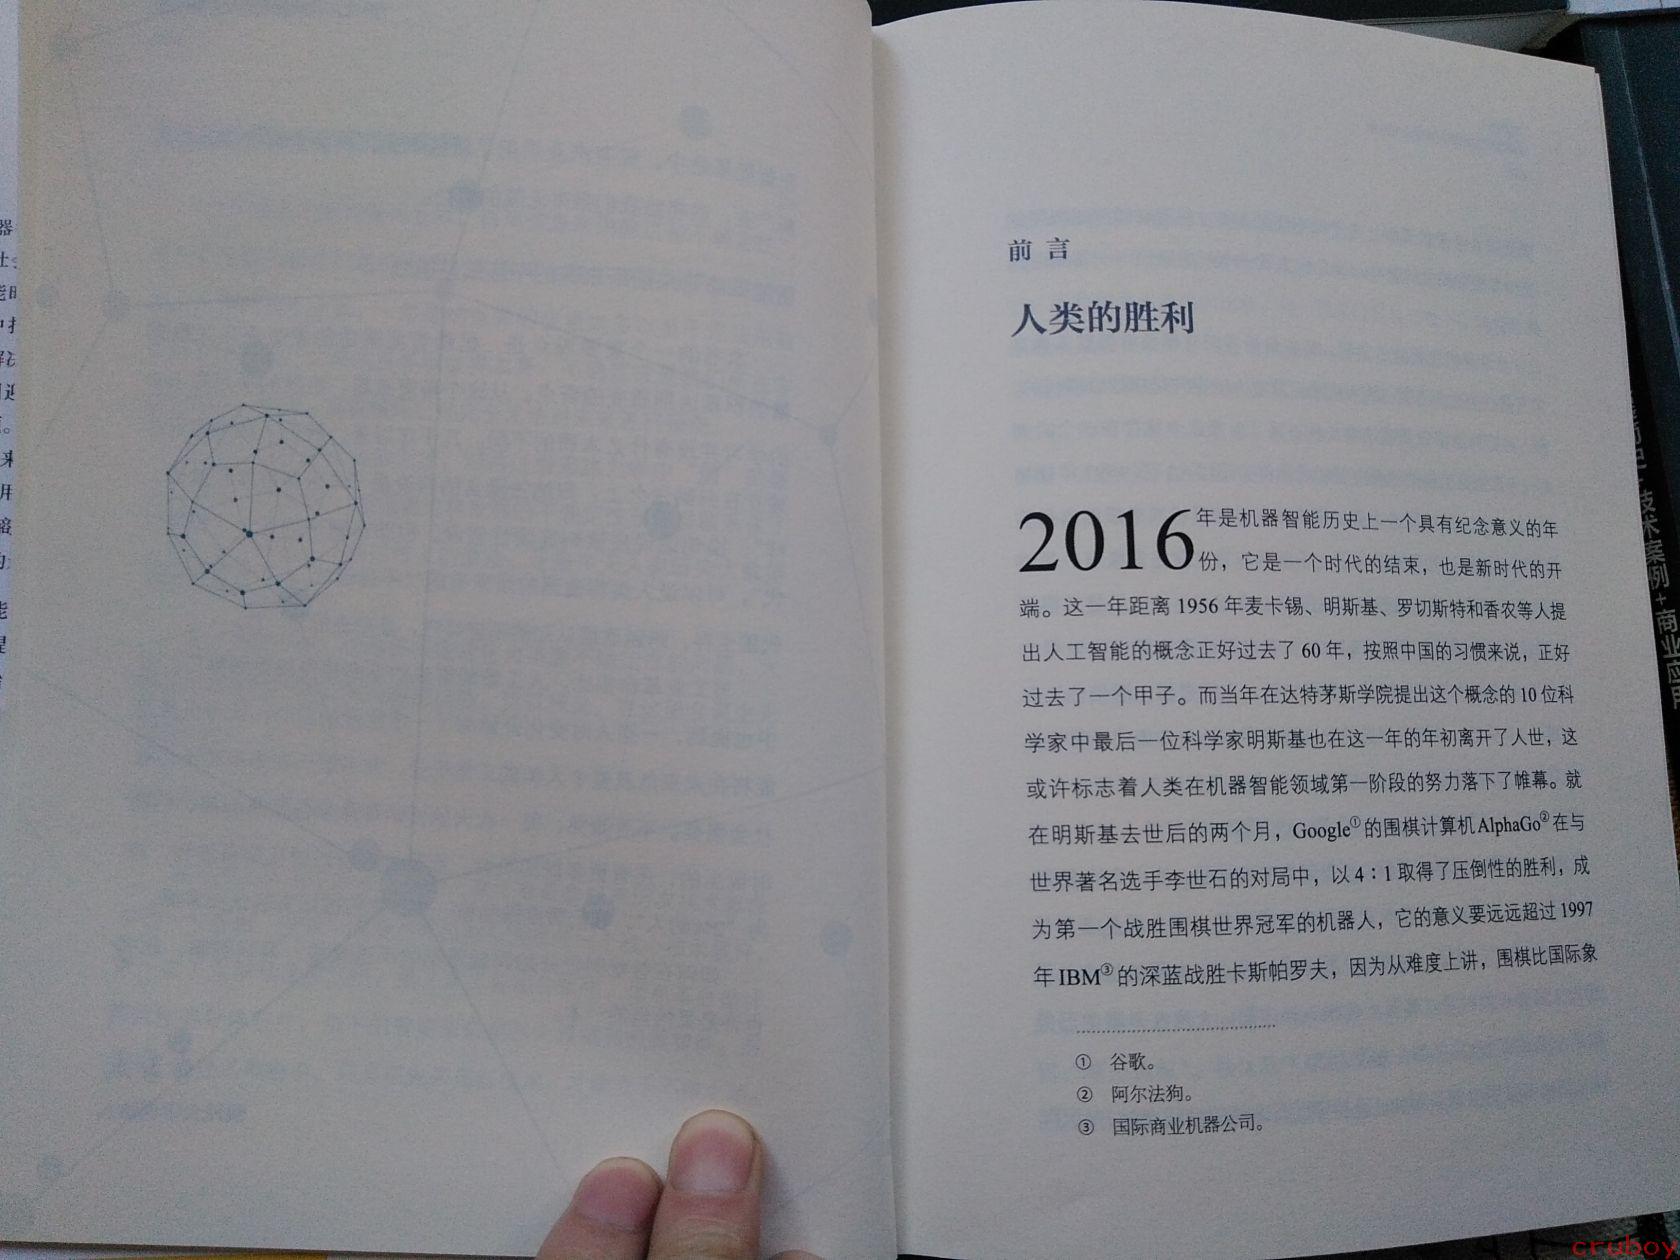 器
能
解决
来
用
能
前 言
人类的胜利
2016年是机器智能历史上一个具有纪念意义的年
份，它是一个时代的结束，也是新时代的开
端。这一年距离 1956 年麦卡锡、明斯基、罗切斯特和香农等人提
出人工智能的概念正好过去了 60 年，按照中国的习惯来说，正好
过去了一个甲子。而当年在达特茅斯学院提出这个概念的 10 位科
学家中最后一位科学家明斯基也在这一年的年初离开了人世，这
或许标志着人类在机器智能领域第一阶段的努力落下了帷幕。就
在明斯基去世后的两个月，Google①的围棋计算机AlphaGo②在与
世界著名选手李世石的对局中，以 4∶1 取得了压倒性的胜利，成
为第一个战胜围棋世界冠军的机器人，它的意义要远远超过 1997
年 IBM③的深蓝战胜卡斯帕罗夫，因为从难度上讲，围棋比国际象
① 谷歌。
② 阿尔法狗。
③ 国际商业机器公司。
技术案例+商业应用
cruboy